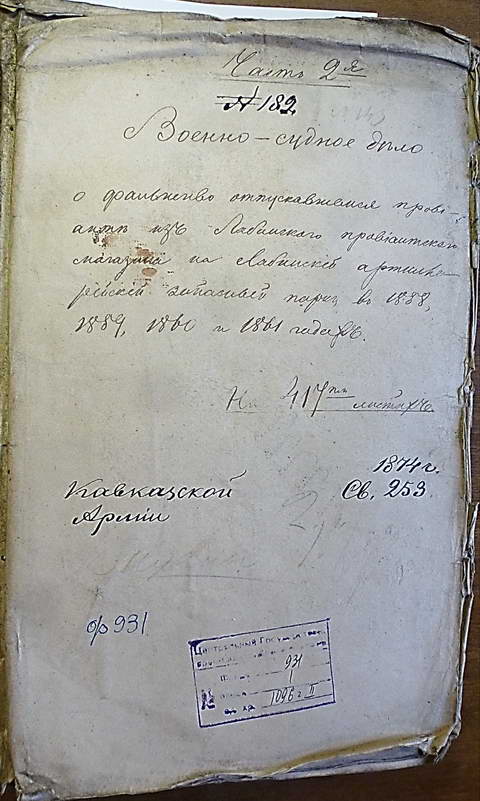 Часть 2я
№ 182
Военно-судное дѣло
о фальшиво отпускавшемся провi-
антѣ изъ Лабинскаго провiантскаго
магазина на Лабинскiй артилле-
рейскiй запасный паркъ въ 1858,
1859, 1860 и 1861 годахъ.
На 417ти листахъ.
1874 г.
Кавказской Св. 253
Армiи
ф 931
Центральный Государствен.
931
№ 1
ед. хр. 1096 г II